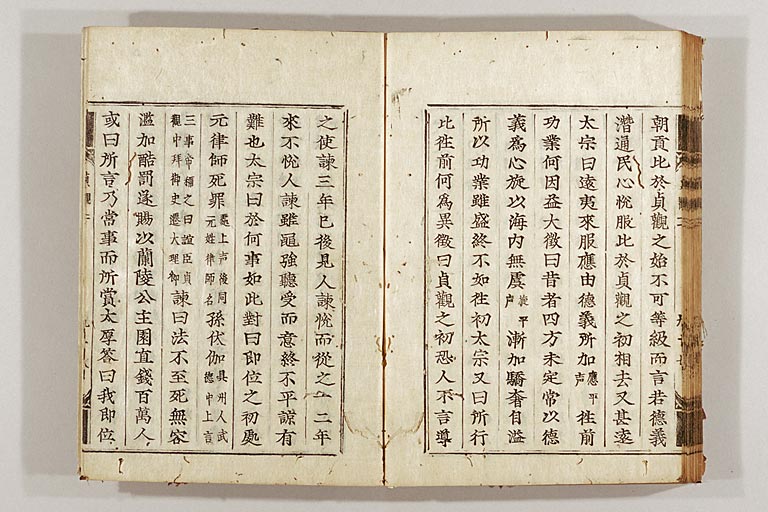 朝貢比於貞觀之始不可等級而言若德義
潛通民心悅服比於貞觀之初相去又甚遠
太宗曰遠夷來服應由德義所加應平声徃前
功業何因益大徵曰昔者四方未定常以德
義爲心旋以海内無虞旋平声漸加驕奢自溢
所以功業雖盛終不如徃初太宗又曰所行
比徃前何爲異徵曰貞觀之初恐人不言導
之使諫三年已後見人諫悅而從之一二年
來不悅人諫雖黽強聽受而意終不平諒有
難也太宗曰於何事如此對曰即位之初處
元律師死罪處上声後同元姓律師名孫伏伽具州人武德中上言
三事帝稱之曰誼臣貞觀中拜御史遷大理卿諫曰法不至死無容
濫加酷罰遂賜以蘭陵公主園直錢百萬人
或曰所言乃常事而所賞太厚答曰我即位